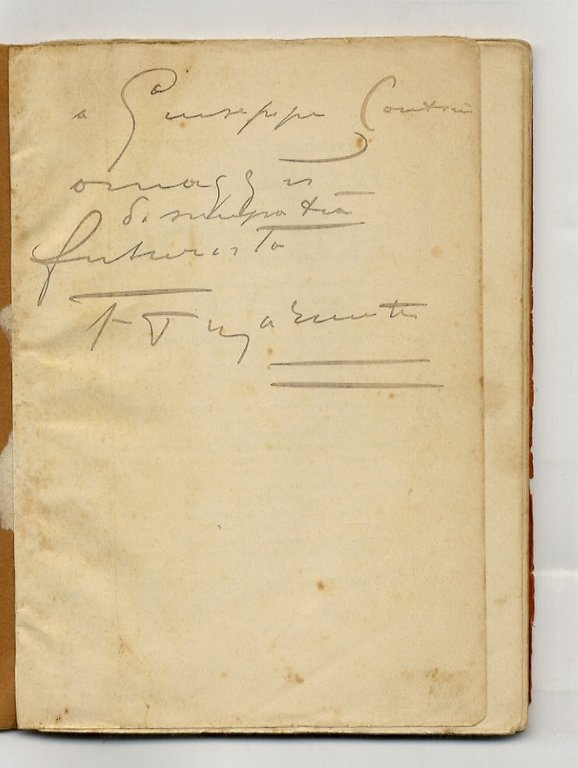 a Giuseppe
omaggio
di simpatia
futurista
F T Marinetti